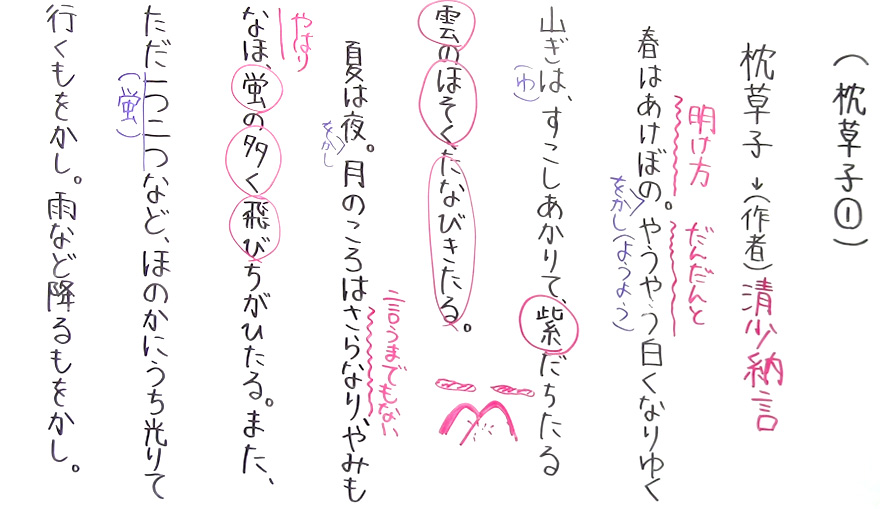 (枕草子①)
枕草子 → (作者) 清少納言
明け方 だんだんと
春はあけぼの。やうやう白くなりゆく
をかし (ようよう)
山ぎは、すこしあかりて、紫だちたる
(わ)
雲のほそくたなびきたる。
言うまでもない
夏は夜。月のころはさらなり、やみも
をかし
やはり
なほ、蛍の多く飛びちがひたる。また、
ただ一つ二つなど、ほのかにうち光りて
(蛍)
行くもをかし。雨など降るもをかし。